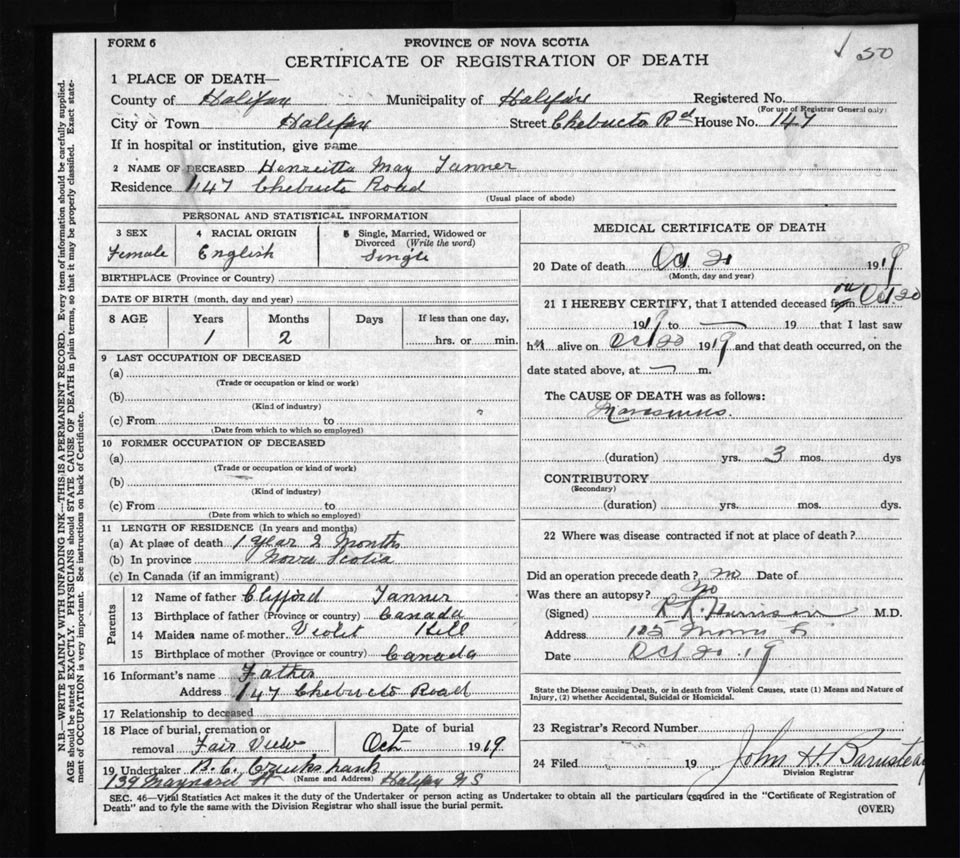 FORM 6
PROVINCE OF NOVA SCOTIA
✓ 50
CERTIFICATE OF REGISTRATION OF DEATH
1 PLACE OF DEATH—
County of Halifax Municipality of Halifax Registered No.
(For use of Registrar General only)
City or Town Halifax Street Chebucto Rd House No. 147
If in hospital or institution, give name
2 NAME OF DECEASED Henrietta May Tanner
Residence 147 Chebucto Road
(Usual place of abode)
PERSONAL AND STATISTICAL INFORMATION
3 SEX 4 RACIAL ORIGIN 5 Single, Married, Widowed or Divorced (Write the word)
Female English Single
BIRTHPLACE (Province or Country)
DATE OF BIRTH (month, day and year)
8 AGE Years Months Days If less than one day,
1 2 hrs. or min.
9 LAST OCCUPATION OF DECEASED
(a)
(Trade or occupation or kind or work)
(b)
(Kind of industry)
(c) From to
(Date from which to which so employed)
10 FORMER OCCUPATION OF DECEASED
(a)
(Trade or occupation or kind of work)
(b)
(Kind of industry)
(c) From to
(Date from which to which so employed)
11 LENGTH OF RESIDENCE (In years and months)
(a) At place of death 1 Year 2 Months
(b) In province Nova Scotia
(c) In Canada (if an immigrant)
Parents
12 Name of father Clifford Tanner
13 Birthplace of father (Province or country) Canada
14 Maiden name of mother Violet Hill
15 Birthplace of mother (Province or country) Canada
16 Informant's name Father
Address 147 Chebucto Road
17 Relationship to deceased
18 Place of burial, cremation or removal Fair View
Date of burial
Oct 1919
19 Undertaker A. E. Cruikshank
139 Maynard St (Name and Address) Halifax N S
MEDICAL CERTIFICATE OF DEATH
20 Date of death Oct. 20 1919
(Month, day and year)
21 I HEREBY CERTIFY, that I attended deceased from on Oct 20
1919 to — 19 that I last saw
her alive on Oct 20 1919 and that death occurred, on the
date stated above, at — m.
The CAUSE OF DEATH was as follows:
Marasmus.
(duration) yrs. 3 mos. dys
CONTRIBUTORY
(Secondary)
(duration) yrs. mos. dys.
22 Where was disease contracted if not at place of death?
Did an operation precede death? no Date of
Was there an autopsy? no
(Signed) Harrison M.D.
Address 125 Morris St
Date Oct 20. 19
State the Disease causing Death, or in death from Violent Causes, state (1) Means and Nature of
Injury, (2) whether Accidental, Suicidal or Homicidal.
23 Registrar's Record Number
24 Filed 19 John H. Barnstead
Division Registrar
SEC. 46—Vital Statistics Act makes it the duty of the Undertaker or person acting as Undertaker to obtain all the particulars required in the "Certificate of Registration of
Death" and to fyle the same with the Division Registrar who shall issue the burial permit.
(OVER)
N.B.—WRITE PLAINLY WITH UNFADING INK—THIS IS A PERMANENT RECORD. Every item of information should be carefully supplied.
AGE should be stated EXACTLY. PHYSICIANS should STATE CAUSE OF DEATH in plain terms, so that it may be properly classified. Exact state-
ment of OCCUPATION is very important. See instructions on back of Certificate.